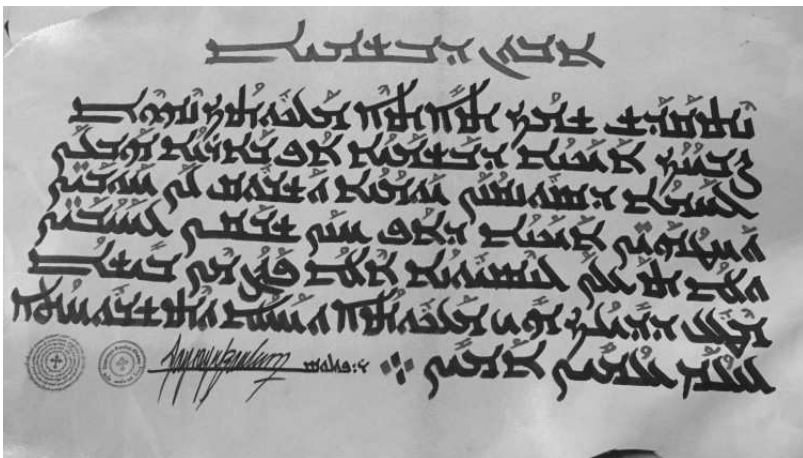 ܐܒܘܢ ܕܒܫܡܝܐ
ܢܬܩܕܫ ܫܡܟ ܬܐܬܐ ܡܠܟܘܬܟ ܢܗܘܐ
ܨܒܝܢܟ ܐܝܟܢܐ ܕܒܫܡܝܐ ܐܦ ܒܐܪܥܐ ܗܒ ܠܢ
ܠܚܡܐ ܕܣܘܢܩܢܢ ܝܘܡܢܐ ܘܫܒܘܩ ܠܢ ܚܘܒܝܢ
ܘܚܛܗܝܢ ܐܝܟܢܐ ܕܐܦ ܚܢܢ ܫܒܩܢ ܠܚܝܒܝܢ
ܘܠܐ ܬܥܠܢ ܠܢܣܝܘܢܐ ܐܠܐ ܦܨܢ ܡܢ ܒܝܫܐ
ܡܛܠ ܕܕܝܠܟ ܗܝ ܡܠܟܘܬܐ ܘܚܝܠܐ ܘܬܫܒܘܚܬܐ
ܠܥܠܡ ܥܠܡܝܢ ܐܡܝܢ